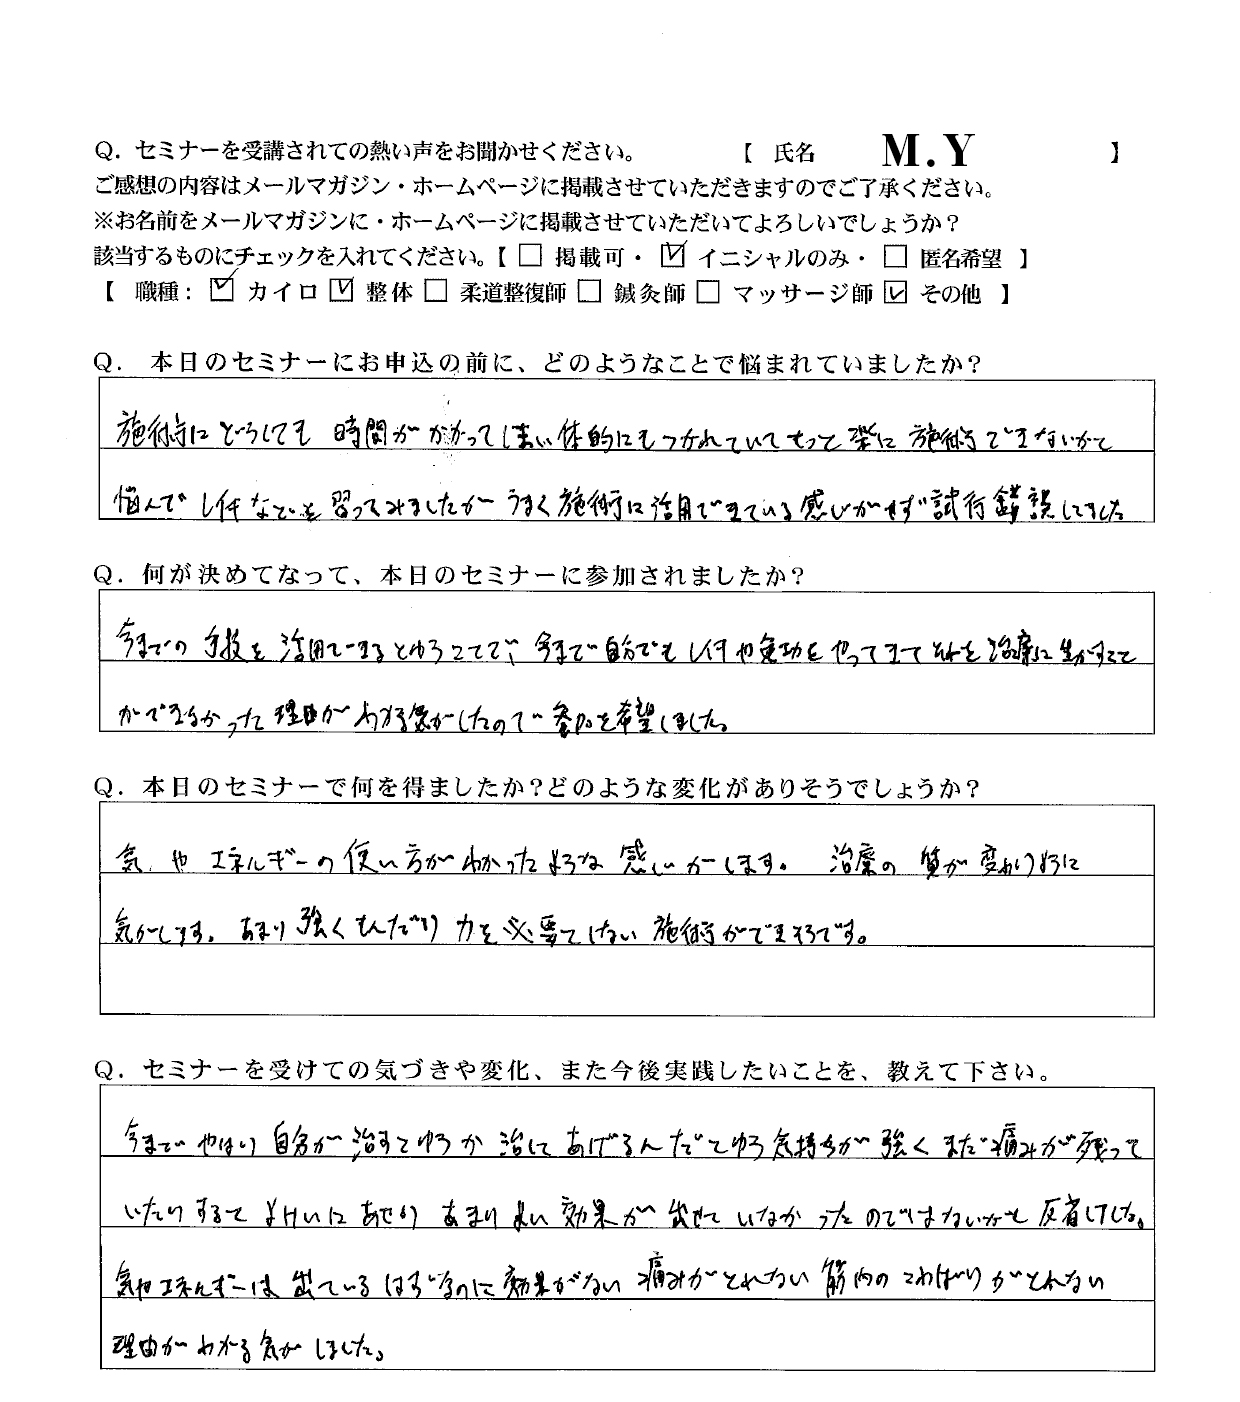 Q. セミナーを受講されての熱い声をお聞かせください。 【 氏名 M.Y 】
ご感想の内容はメールマガジン・ホームページに掲載させていただきますのでご了承ください。
※お名前をメールマガジンに・ホームページに掲載させていただいてよろしいでしょうか?
該当するものにチェックを入れてください。【 □ 掲載可・ ☑ イニシャルのみ・ □ 匿名希望 】
【 職種: ☑ カイロ ☑ 整体 □ 柔道整復師 □ 鍼灸師 □ マッサージ師 ☑ その他 】
Q. 本日のセミナーにお申込の前に、どのようなことで悩まれていましたか?
施術にどうしても 時間がかかってしまい体的にもつかれていてもって楽に 施術できないかと
悩んで などを 習ってみましたが うまく施術に活用できている感じがせず試行錯誤してました
Q. 何が決めてなって、本日のセミナーに参加されましたか?
今までの 手技を 活用できるとゆうことで、今まで自分でも や気功をやってきて それを治療に生かすこと
ができなかった理由がわかる気がしたので 参加を希望しました。
Q. 本日のセミナーで何を得ましたか?どのような変化がありそうでしょうか?
気 や エネルギーの使い方がわかったような 感じがします。 治療の 質が変わりように
気がします。あまり強くもんだり 力を必要としない施術ができそうです。
Q. セミナーを受けての気づきや変化、また今後実践したいことを、教えて下さい。
今まで やはり 自分が 治すとゆうか 治してあげるんだとゆう気持ちが 強く まだ痛みが残って
いたりすると よけいに あせり あまり良い 効果が 出せて いなかったのではないかと 反省しました。
気やエネルギーは 出ている はずなのに 効果がない 痛みがとれない 筋肉の こわばりがとれない
理由がわかる気が しました。